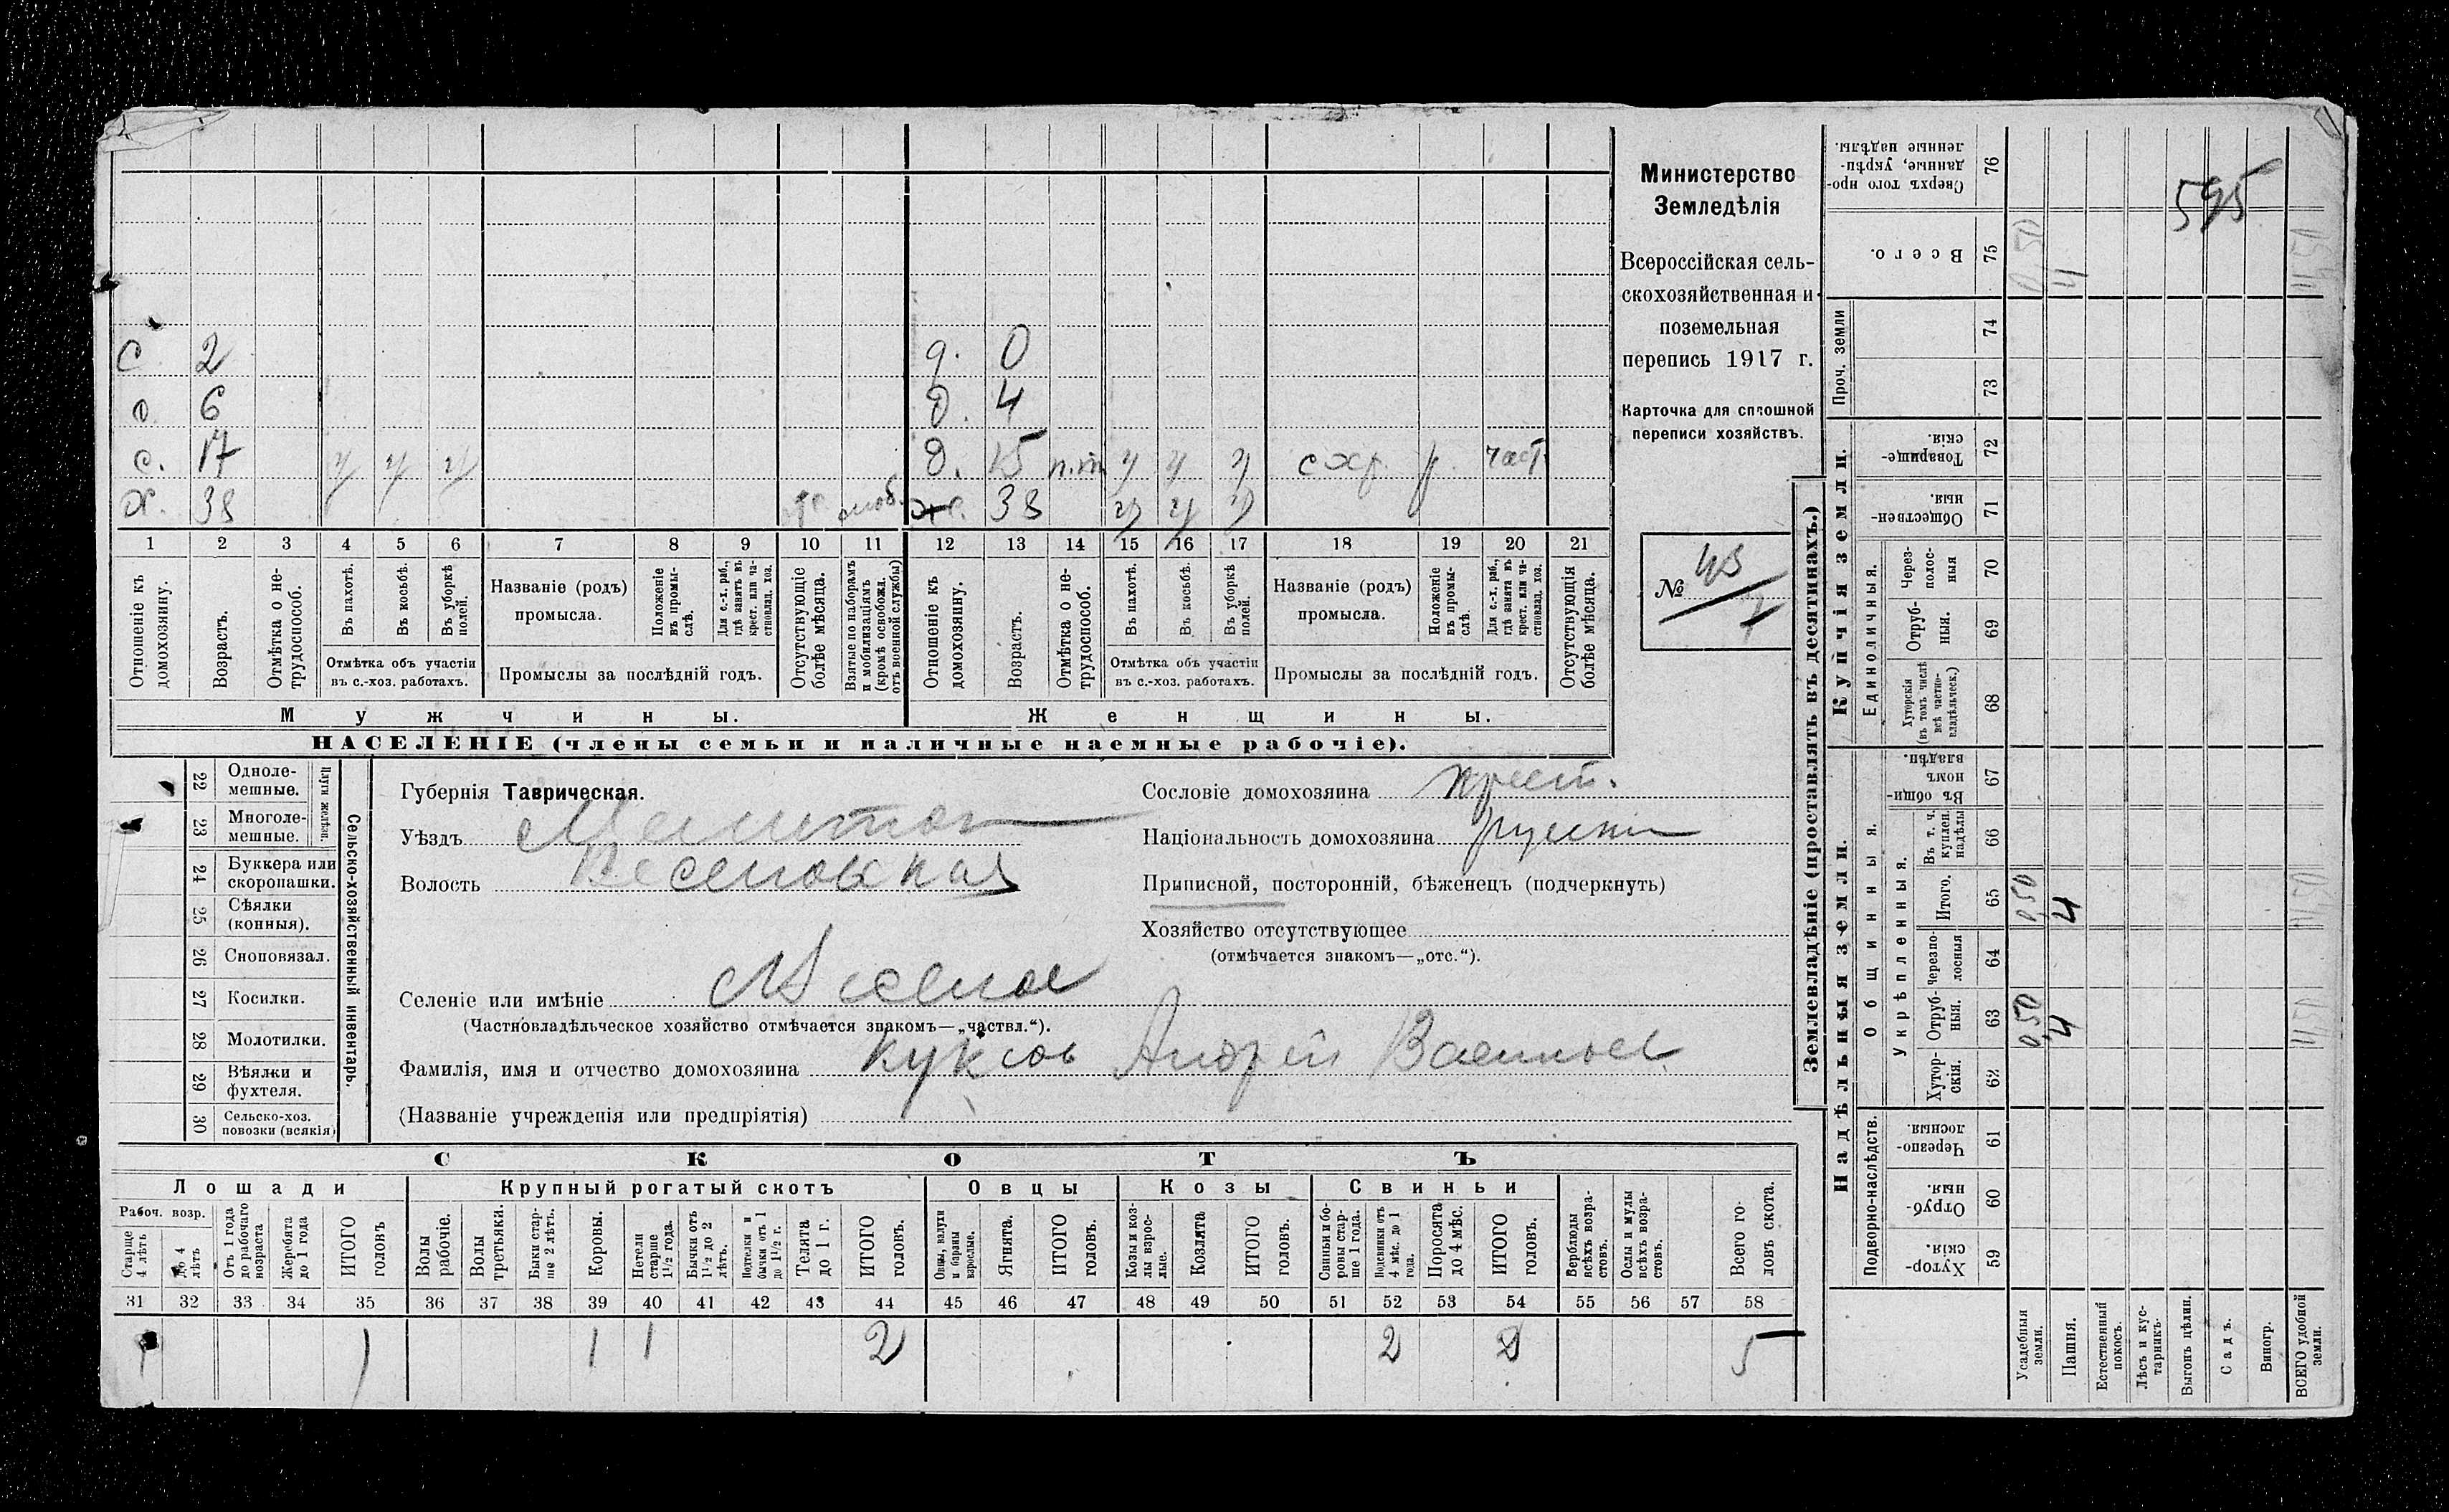 С 2 д. 0
с 6 д. 4
с. 17 ч ч ч д. 15 п.т ч ч ч с хр. р. част.
х. 38 моб. ж. 38 ч ч ч
1 2 3 4 5 6 7 8 9 10 11 12 13 14 15 16 17 18 19 20 21
Отношеніе къ домохозяину.
Возрастъ.
Отмѣтка о нетрудоспособ.
Въ пахотѣ.
Въ косьбѣ.
Въ уборкѣ полей.
Отмѣтка объ участіи въ с.-хоз. работахъ.
Названіе (родъ) промысла.
Положеніе въ промыслѣ.
Для с.-х. раб., гдѣ занятъ въ крест. или частновлад. хоз.
Промыслы за послѣдній годъ.
Отсутствующіе болѣе мѣсяца.
Взятые по наборамъ и мобилизаціямъ (кромѣ освобожд. отъ военной службы)
Отношеніе къ домохозяину.
Возрастъ.
Отмѣтка о нетрудоспособ.
Въ пахотѣ.
Въ косьбѣ.
Въ уборкѣ полей.
Отмѣтка объ участіи въ с.-хоз. работахъ.
Названіе (родъ) промысла.
Положеніе въ промыслѣ.
Для с.-х. раб., гдѣ занята въ крест. или частновлад. хоз.
Промыслы за послѣдній годъ.
Отсутствующія болѣе мѣсяца.
Мужчины. Женщины.
НАСЕЛЕНІЕ (члены семьи и наличные наемные рабочіе).
Министерство
Земледѣлія
Всероссійская сель-
скохозяйственная и
поземельная
перепись 1917 г.
Карточка для сплошной
переписи хозяйствъ.
№ 43
1
22 Одноле-
мешные.
23 Многоле-
мешные.
Плуги желѣзн.
24 Буккера или
скоропашки.
25 Сѣялки
(конныя).
26 Сноповязал.
27 Косилки.
28 Молотилки.
29 Вѣялки и
фухтеля.
30 Сельско-хоз.
повозки (всякія)
Сельско-хозяйственный инвентарь.
Губернія Таврическая.
Уѣздъ Мелитоп
Волость Веселовская
Селеніе или имѣніе с Веселое
(Частновладѣльческое хозяйство отмѣчается знакомъ—„частвл.“).
Фамилія, имя и отчество домохозяина Куксов Андрей Васильев
(Названіе учрежденія или предпріятія)
Сословіе домохозяина крест.
Національность домохозяина русски
Приписной, посторонній, бѣженецъ (подчеркнуть)
Хозяйство отсутствующее
(отмѣчается знакомъ—„отс.“).
СКОТЪ
Лошади Крупный рогатый скотъ Овцы Козы Свиньи
Рабоч. возр.
Старше 4 лѣтъ
До 4 лѣтъ
Отъ 1 года до рабочаго возраста
Жеребята до 1 года
ИТОГО головъ
Волы рабочіе.
Волы третьяки.
Быки старше 2 лѣтъ.
Коровы.
Нетели старше 1½ года.
Бычки отъ 1½ до 2 лѣтъ.
Подтелки и бычки отъ 1 до 1½ г.
Телята до 1 г.
ИТОГО головъ.
Овцы, валухи и бараны взрослые.
Ягнята.
ИТОГО головъ.
Козы и козлы взрослые.
Козлята
ИТОГО головъ.
Свиньи и боровы старше 1 года.
Подсвинки отъ 4 мѣс. до 1 года.
Поросята до 4 мѣс.
ИТОГО головъ.
Верблюды всѣхъ возрастовъ.
Ослы и мулы всѣхъ возрастовъ.
Всего головъ скота.
31 32 33 34 35 36 37 38 39 40 41 42 43 44 45 46 47 48 49 50 51 52 53 54 55 56 57 58
1 1 1 1 2 2 2 5
Землевладѣніе (проставлять въ десятинахъ.)
Купчія земли.
Надѣльныя земли.
Проч. земли
Единоличныя.
Общинныя.
Укрѣпленныя.
Подворно-наслѣдств.
Сверхъ того проданные, укрѣпленные надѣлы. 76
595
Всего. 75 0,50 11 11,50
74
73
Товарищескія. 72
Общественныя. 71
Черезполосныя 70
Отрубныя. 69
Хуторскія (въ томъ числѣ всѣ частновладѣльческ.) 68
Въ общинномъ владѣн. 67
Въ т. ч. куплен. надѣлы 66
Итого. 65 0,50 4 11,50
Черезполосныя 64
Отрубныя. 63 0,50 4 11,50
Хуторскія. 62
Черезполосныя. 61
Отрубныя. 60
Хуторскія. 59
Усадебныя земли.
Пашня.
Естественный покосъ.
Лѣсъ и кустарникъ.
Выгонъ цѣлин.
Садъ.
Виногр.
ВСЕГО удобной земли.